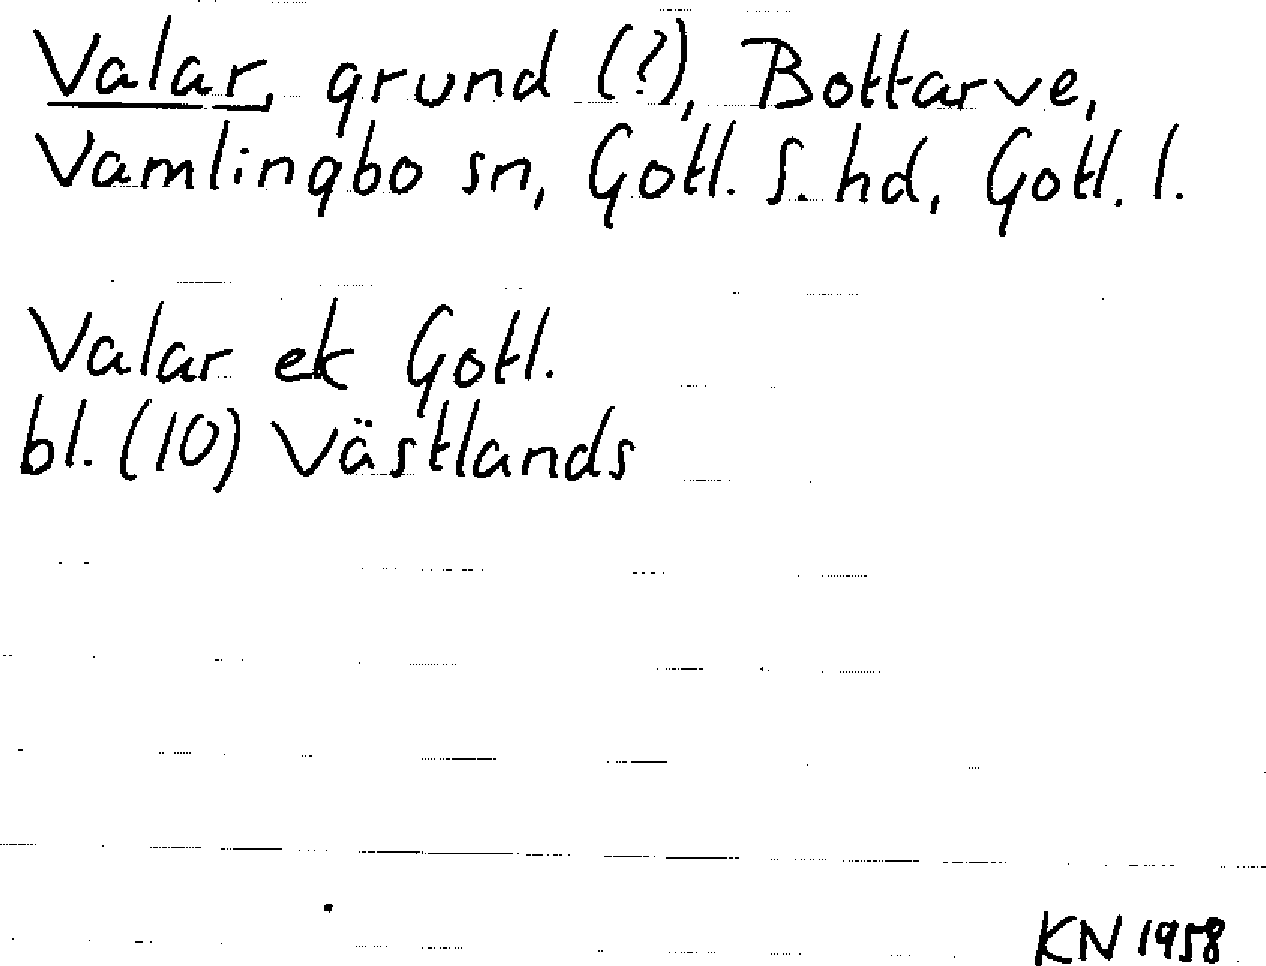 Valar, grund (?), Bottarve,
Vamlingbo sn, Gotl. S. hd, Gotl. l.
Valar ek Gotl.
bl. (10) Västlands
KN 1958